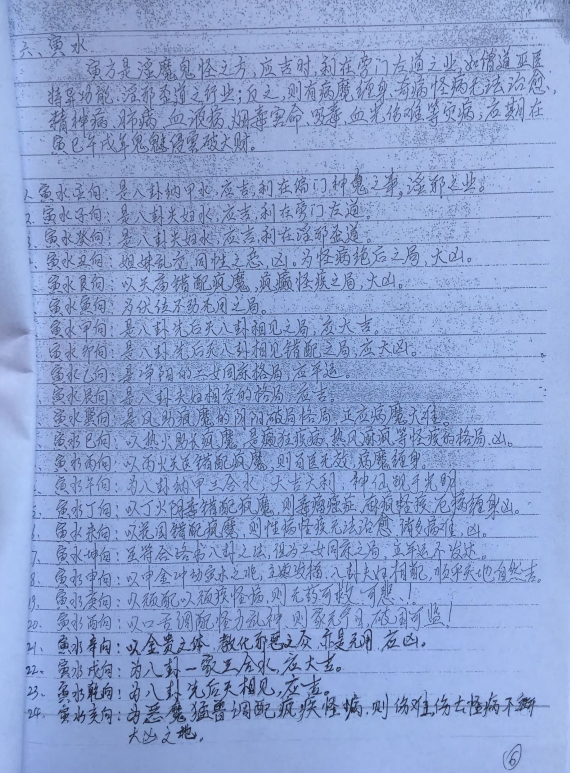 六、寅水
寅方是淫魔鬼怪之方，应吉时，利在旁门左道之业，如情道巫医
特异功能、淫邪歪道之行业；反之，则有病魔缠身，奇病怪病无法治愈，
精神病、肺病、血液病、烟毒害命、吸毒、血光伤难等灾病，应期在
寅巳午戌年鬼魅侵害破大财。
1. 寅水壬向：是八卦纳甲水，应吉，利在偏门，种鬼之事，淫邪之业。
2. 寅水子向：是八卦夫妇水，应吉，利在旁门左道。
3. 寅水癸向：是八卦夫妇水，应吉，利在淫邪歪道。
4. 寅水丑向：姐妹乱交，同性之恶，凶。为怪病绝后之局，大凶。
寅水艮向：以天高错配疯魔，疯癫怪疾之局，大凶。
寅水寅向：为伏位不动无用之局。
寅水甲向：是八卦先后天八卦相见之局，应大吉。
寅水卯向：是八卦先后天八卦相见错配之局，应大凶。
寅水乙向：是净阴的二女同床格局，应平运。
寅水辰向：是八卦夫妇相交的格局，应吉。
寅水巽向：是风助疯魔的阴阳破局格局，正应病魔大难。
寅水巳向：以热火助长疯魔，是癫狂疾病，热风麻疯等怪疾病格局，凶。
寅水丙向：以丙火天医错配疯魔，则旬医无效，病魔缠身。
寅水午向：为八卦纳甲三合水，大吉大利，种低现于光明。
寅水丁向：以丁火阴毒错配疯魔，则毒瘤癌症，麻疯怪疾，厄格缠身凶。
6. 寅水未向：以花园错配疯魔，则性病怪疾无法治愈，诸多病难，凶。
7. 寅水坤向：虽符合洛书八卦之法，但为二女同床之局，立平运不发达。
8. 寅水申向：以申金冲动寅水之地，主破败格，八卦夫妇相配，顺乎天地自然吉。
19. 寅水庚向：以顽配以顽疾怪病，则无药可救，可悲！
20. 寅水酉向：以口舌调配怪力乱神，则家无宁日，破国可监！
21. 寅水辛向：以金贵文体，教化而恶之灰，亦是无用，应凶。
22. 寅水戌向：为八卦一家三合水，应大吉。
23. 寅水乾向：为八卦先后天相见，应吉。
24. 寅水亥向：为恶魔猛兽调配疯疾怪病，则伤难，伤亡怪病不断
大凶之地。
6